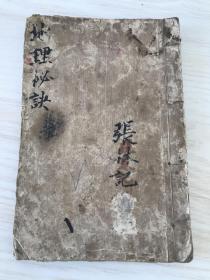 地理秘訣
張
記